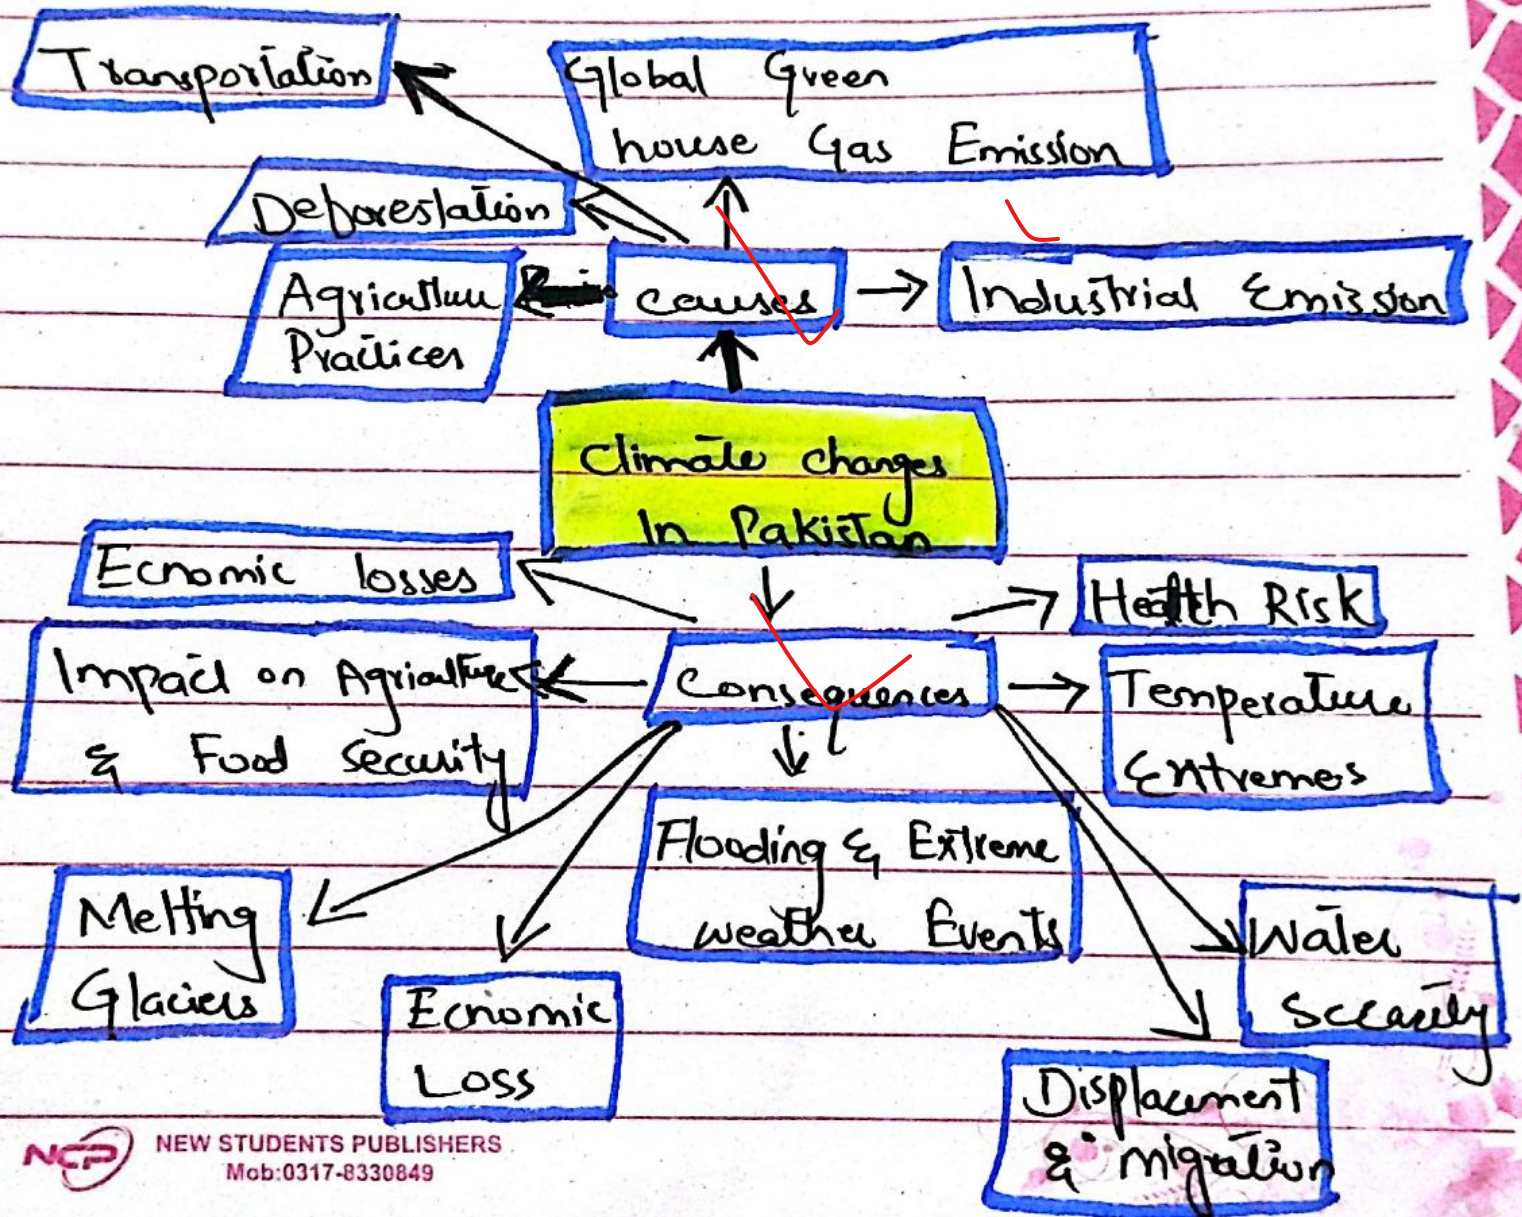 Transportation
Global Green
house Gas Emission
Deforestation
Agriculture
Practices
causes
Industrial Emission
Climate changes
In Pakistan
Ecnomic losses
Health Risk
Impact on Agriculture
& Food security
Consequences
Temperature
Extremes
Flooding & Extreme
weather Events
Melting
Glaciers
Ecnomic
Loss
Water
Sccarcity
Displacement
& migration
NCP
NEW STUDENTS PUBLISHERS
Mob:0317-8330849